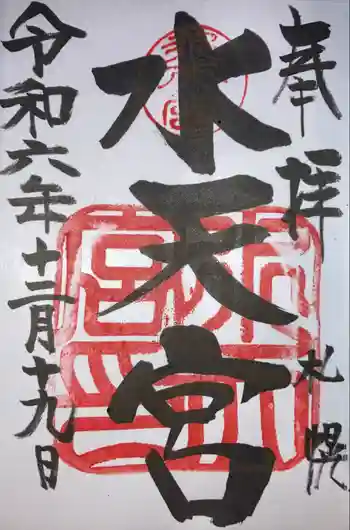 奉拝
札幌
水天宮
令和六年十二月十九日